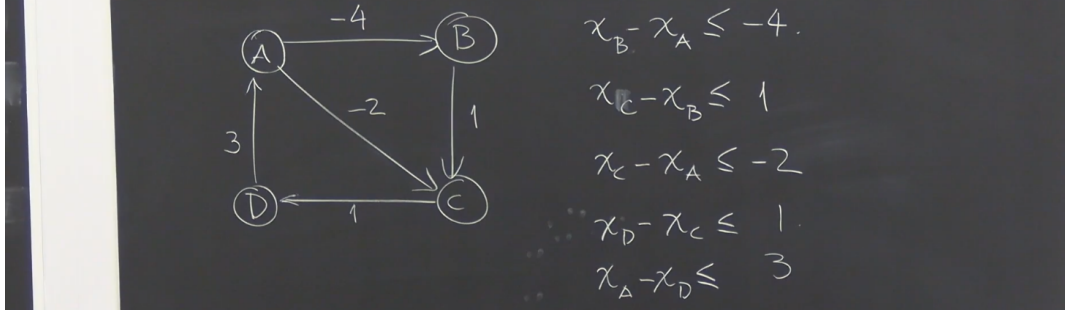 -4
A
B
-2
3
1
D
1
C
x_B - x_A ≤ -4.
x_C - x_B ≤ 1
x_C - x_A ≤ -2
x_D - x_C ≤ 1.
x_A - x_D ≤ 3